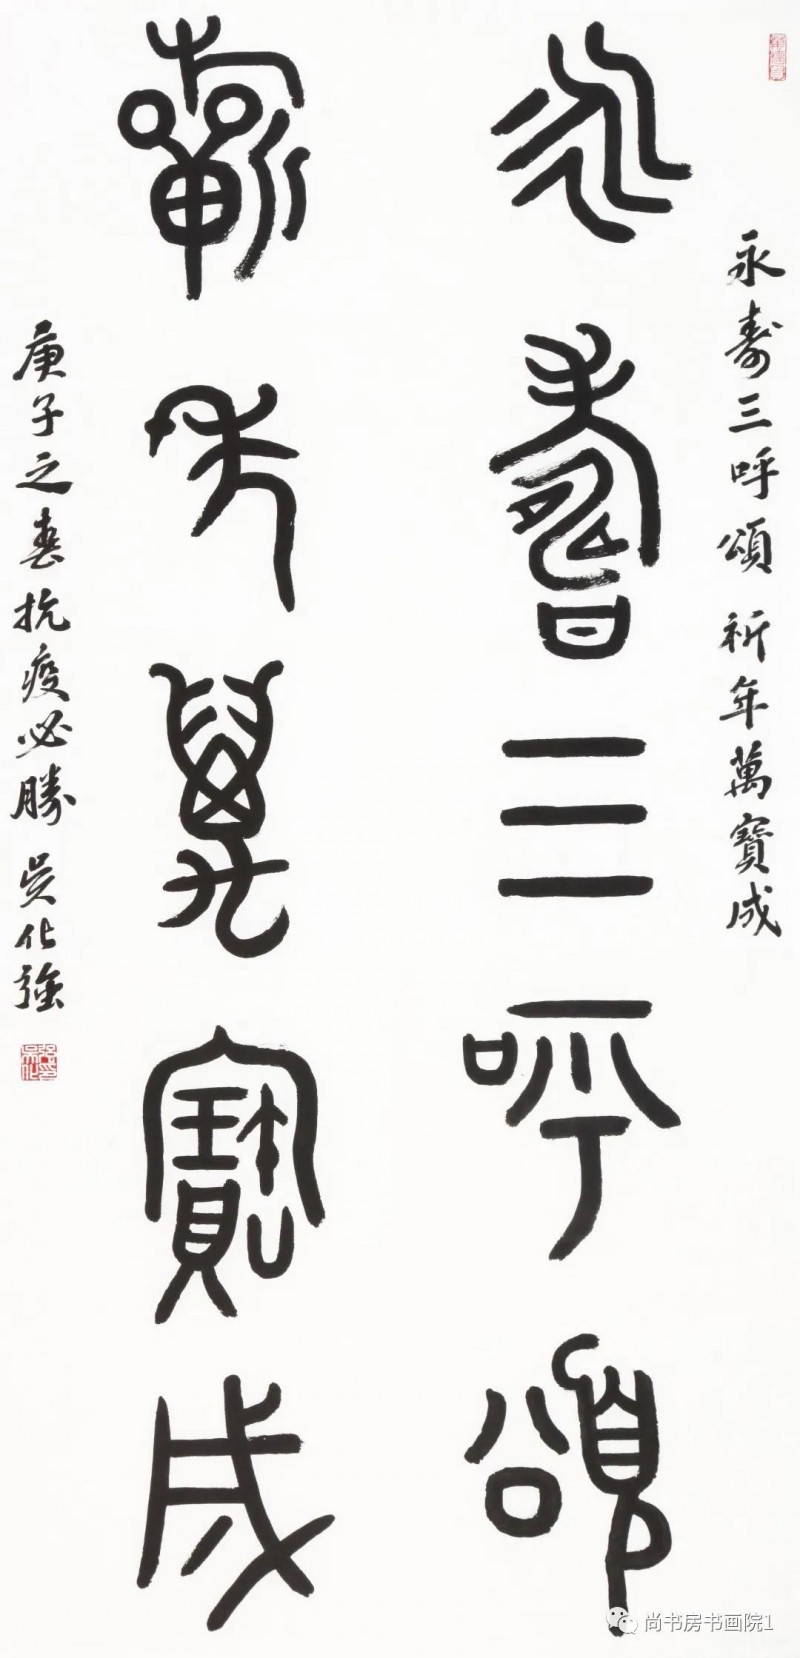 永壽三呼頌
祈年萬寶成
永壽三呼頌 祈年萬寶成
庚子之春抗疫必勝 吳化強
尚书房书画院1